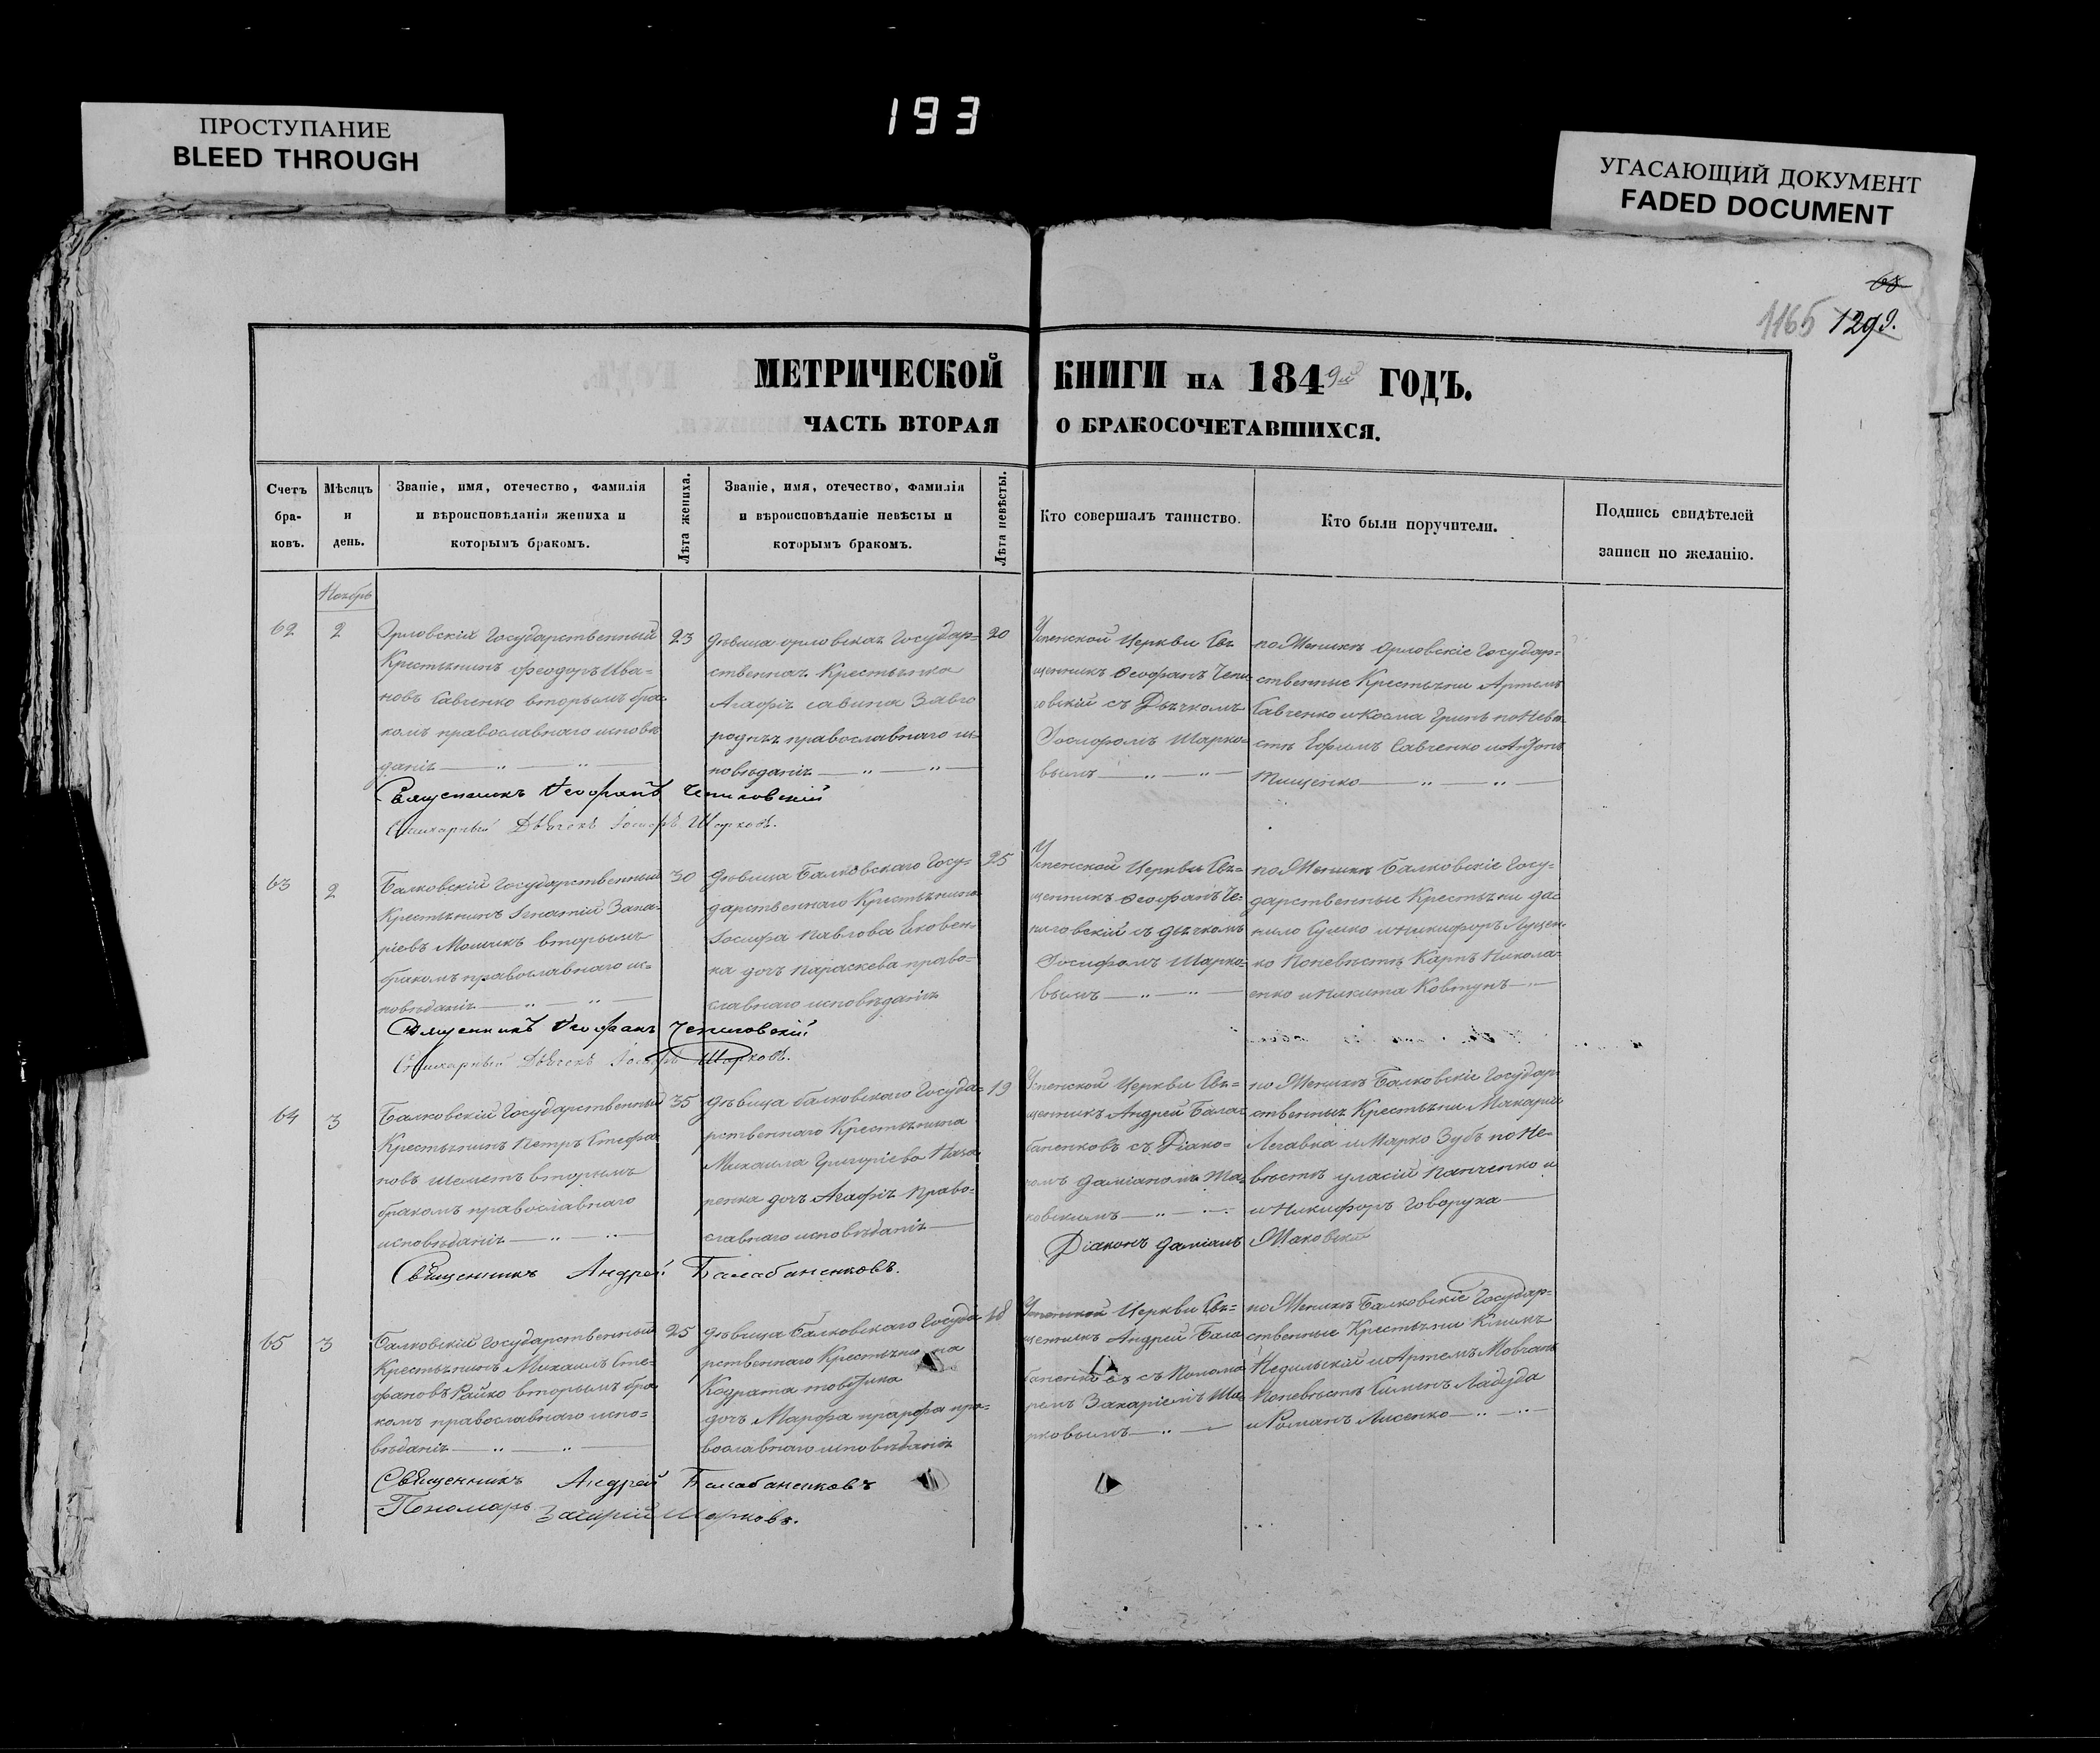 193
ПРОСТУПАНИЕ
BLEED THROUGH
УГАСАЮЩИЙ ДОКУМЕНТ
FADED DOCUMENT
68
1165 1299.
МЕТРИЧЕСКОЙ КНИГИ НА 1849й ГОДЪ.
ЧАСТЬ ВТОРАЯ О БРАКОСОЧЕТАВШИХСЯ.
Счетъ бра-ковъ.
Мѣсяцъ и день.
Званіе, имя, отечество, фамилія
и вѣроисповѣданія жениха и
которымъ бракомъ.
Лѣта жениха.
Званіе, имя, отечество, фамилія
и вѣроисповѣданіе невѣсты и
которымъ бракомъ.
Лѣта невѣсты.
Кто совершалъ таинство.
Кто были поручители.
Подпись свидѣтелей
записи по желанію.
Ноябрь
62
2
Орловскій Государственный
Крестьянинъ Феодоръ Ива-
новъ Савченко вторымъ бра
комъ православнаго исповѣ
данія
23
Дѣвица орловская Государ-
ственная Крестьянка
Агафія Савина
православнаго ис-
повѣданія
20
Успенской Церкви Свя
щенникъ Ѳеофанъ Чепи
говскій съ Дьячкомъ
Іосифомъ Шарко-
вымъ
по Женихѣ Орловскіе Государ-
ственные Крестьяни Артемъ
Савченко и Косма Гринь по Невѣ
стѣ Ефимъ Савченко и Антонъ
Тищенко
Священникъ Ѳеофанъ Чепиговскій
Стихарный Дьячекъ Іосифъ Шарковъ.
63
2
Балковскій Государственный
Крестьянинъ Игнатій Заха-
ріевъ Мошикъ вторымъ
бракомъ православнаго ис-
повѣданія
30
Дѣвица Балковскаго Госу-
дарственнаго Крестьянина
Іосифа Павлова Яковен-
ка дочь Параскева право-
славнаго исповѣданія
25
Успенской Церкви Свя-
щенникъ Ѳеофанъ Че-
пиговскій съ дьячкомъ
Іосифомъ Шарко-
вымъ
по Женихѣ Балковскіе Госу-
дарственные Крестьяни Да-
нило Сушко и Никифоръ Луцен-
ко Поневѣстѣ Карпъ Никола-
енко и Никита Ковтунъ
Священникъ Ѳеофанъ Чепиговскій
Стихарный Дьячекъ Іосифъ Шарковъ.
64
3
Балковскій Государственный
Крестьянинъ Петръ Стефа
новъ Шеметъ вторымъ
бракомъ православнаго
исповѣданія
35
Дѣвица балковскаго Госуда-
рственнаго Крестьянина
Михаила Григоріева Наза
ренка дочь Агафія Право-
славнаго исповѣданія
19
Успенской Церкви Свя-
щенникъ Андрей Бала
баненковъ съ Діако-
номъ Даміаномъ Ма-
ковскимъ
по Женихѣ Балковскіе Государ-
ственныя Крестьяни Макарій
Легавка и Марко Зубъ по Не-
вѣстѣ Уласій Панченко и
и Никифоръ Говоруха
Священникъ Андрей Балабаненковъ.
Діаконъ Даміанъ Маковскій
65
3
Балковскій Государственный
Крестьянинъ Михаилъ Сте-
фановъ Райко вторымъ бра
комъ православнаго испо-
вѣданія
25
Дѣвица Балковскаго Госуда
рственнаго Крестьянина
Кодрата
дочь Марфа пра-
вославнаго исповѣданія
18
Успенской Церкви Свя-
щенникъ Андрей Бала
баненковъ съ Понома
ремъ Захаріемъ Ша
рковымъ
по Женихѣ Балковскіе Государ-
ственные Крестьяни Климъ
Недильскій и Артемъ Мовчанъ
Поневѣстѣ Симонъ Ладуда
и Романъ Лисенко
Священникъ Андрей Балабаненковъ
Пономарь Захарій Шарковъ.